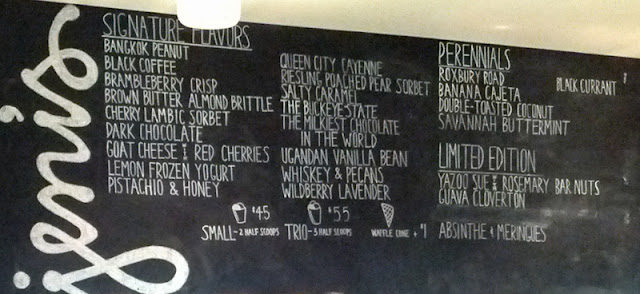 jeni's
SIGNATURE FLAVORS
BANGKOK PEANUT
BLACK COFFEE
BRAMBLEBERRY CRISP
BROWN BUTTER ALMOND BRITTLE
CHERRY LAMBIC SORBET
DARK CHOCOLATE
GOAT CHEESE & RED CHERRIES
LEMON FROZEN YOGURT
PISTACHIO & HONEY
QUEEN CITY CAYENNE
RIESLING POACHED PEAR SORBET
SALTY CARAMEL
THE BUCKEYE STATE
THE MILKIEST CHOCOLATE
IN THE WORLD
UGANDAN VANILLA BEAN
WHISKEY & PECANS
WILDBERRY LAVENDER
$45
SMALL-2 HALF SCOOPS
$55
TRIO-3 HALF SCOOPS
WAFFLE CONE +$1
PERENNIALS
ROXBURY ROAD
BANANA CAJETA
DOUBLE-TOASTED COCONUT
SAVANNAH BUTTERMINT
BLACK CURRANT
LIMITED EDITION
YAZOO SUE & ROSEMARY BAR NUTS
GUAVA CLOVERTON
ABSINTHE & MERINGUES